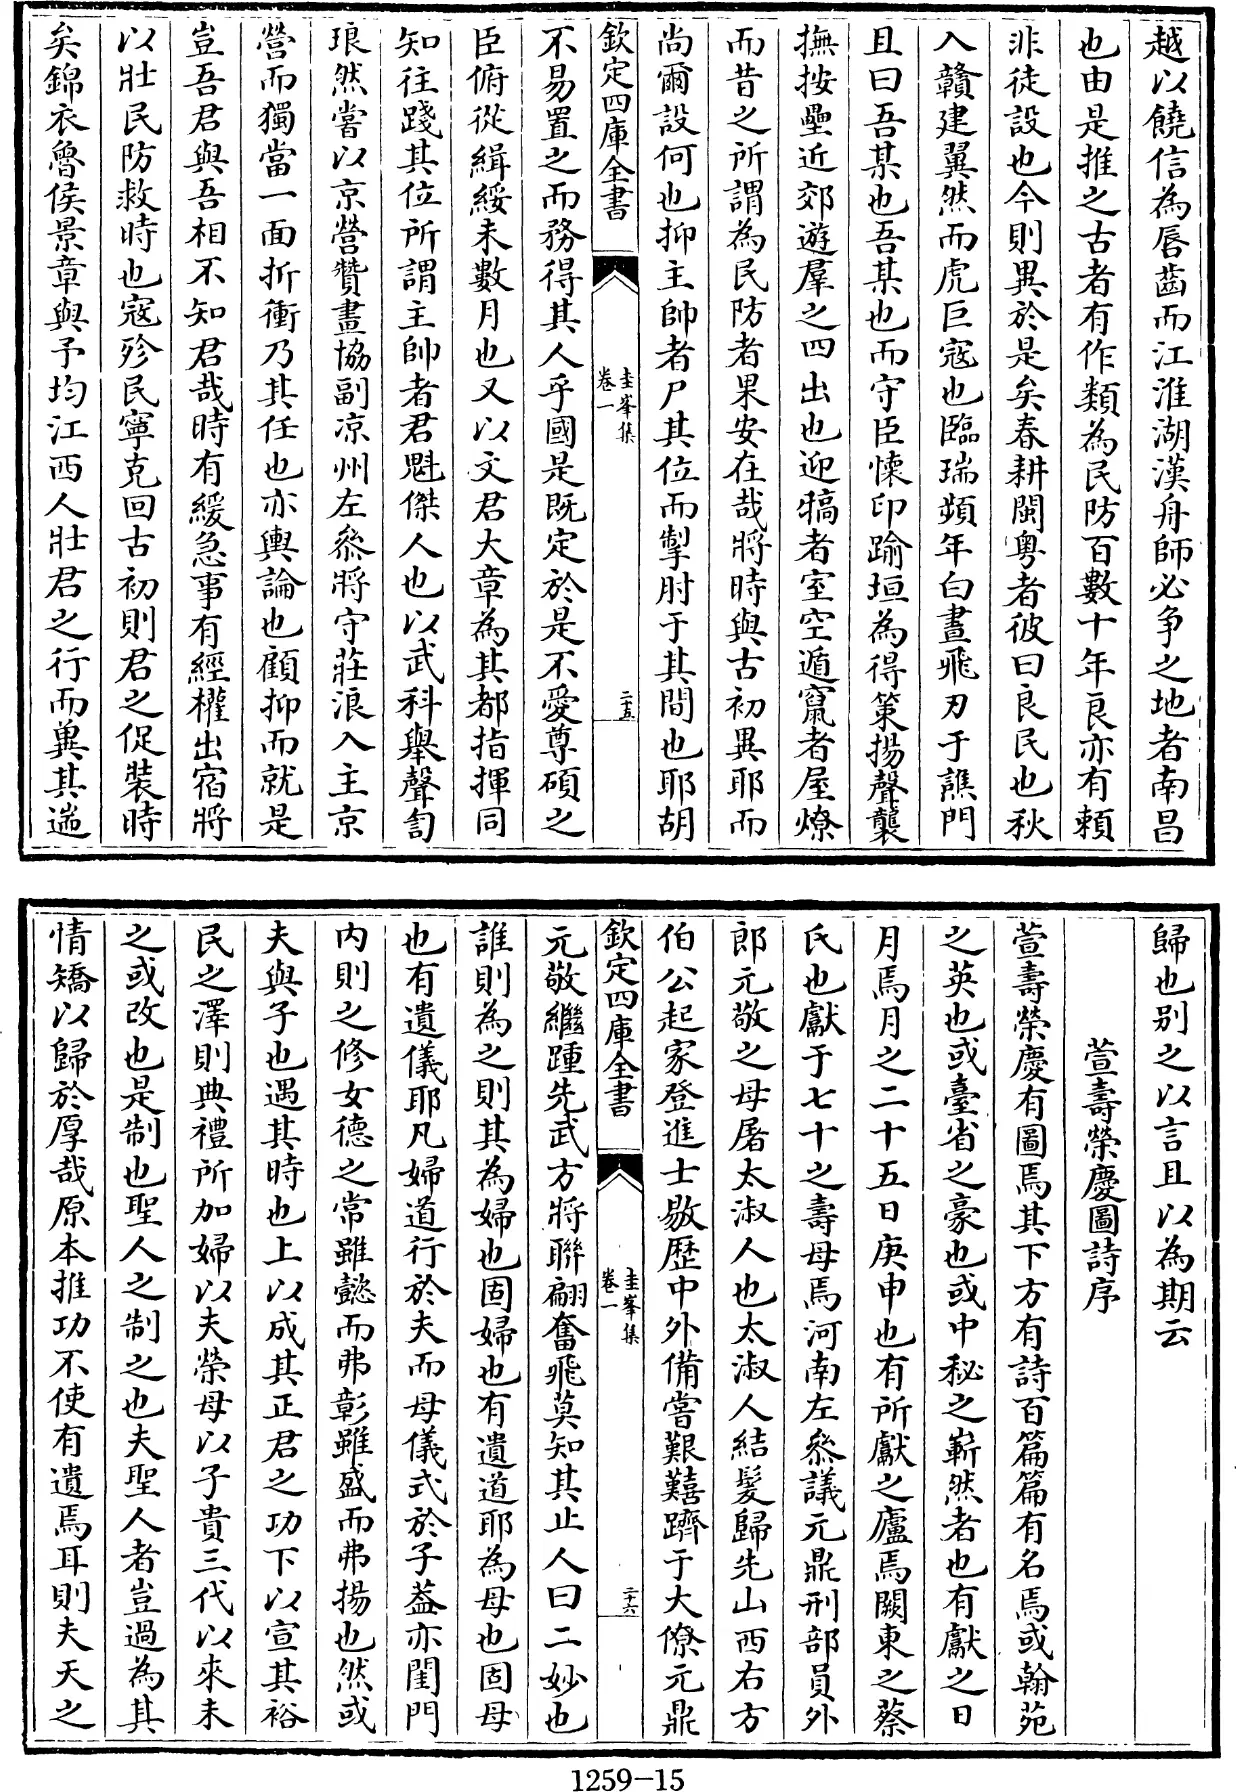 越以饒信為唇齒而江淮湖漢舟師必爭之地者南昌
也由是推之古者有作類為民防百數十年良亦有賴
非徒設也今則異於是矣春耕閩粵者彼曰良民也秋
入贛建翼然而虎巨寇也臨瑞頻年白晝飛刃于譙門
且曰吾某也吾某也而守臣懐印踰垣為得策揚聲襲
撫按壘近郊遊羣之四出也迎犒者室空遁竄者屋燎
而昔之所謂為民防者果安在哉將時與古初異耶而
尚爾設何也抑主帥者尸其位而掣肘于其間也耶胡
欽定四庫全書
圭峯集
卷一
二十五
不易置之而務得其人乎國是既定於是不愛尊碩之
臣俯從緝綏未數月也又以文君大章為其都指揮同
知往踐其位所謂主帥者君魁傑人也以武科舉聲訇
琅然嘗以京營贊畫協副凉州左叅將守莊浪入主京
營而獨當一面折衝乃其任也亦輿論也顧抑而就是
豈吾君與吾相不知君哉時有緩急事有經權出宿將
以壯民防救時也寇殄民寧克回古初則君之促裝時
矣錦衣魯侯景章與予均江西人壯君之行而冀其遄
歸也别之以言且以為期云
萱壽榮慶圖詩序
萱壽榮慶有圖焉其下方有詩百篇篇有名焉或翰苑
之英也或臺省之豪也或中秘之嶄然者也有獻之日
月焉月之二十五日庚申也有所獻之廬焉闕東之蔡
氏也獻于七十之壽母焉河南左叅議元鼎刑部員外
郎元敬之母屠太淑人也太淑人結髮歸先山西右方
伯公起家登進士敭歴中外備嘗艱囏躋于大僚元鼎
欽定四庫全書
圭峯集
卷一
二十六
元敬繼踵先武方將聯翩奮飛莫知其止人曰二妙也
誰則為之則其為婦也固婦也有遺道耶為母也固母
也有遺儀耶凡婦道行於夫而母儀式於子葢亦閨門
内則之修女德之常雖懿而弗彰雖盛而弗揚也然或
夫與子也遇其時也上以成其正君之功下以宣其裕
民之澤則典禮所加婦以夫榮母以子貴三代以來未
之或改也是制也聖人之制之也夫聖人者豈過為其
情矯以歸於厚哉原本推功不使有遺焉耳則夫天之
1259-15